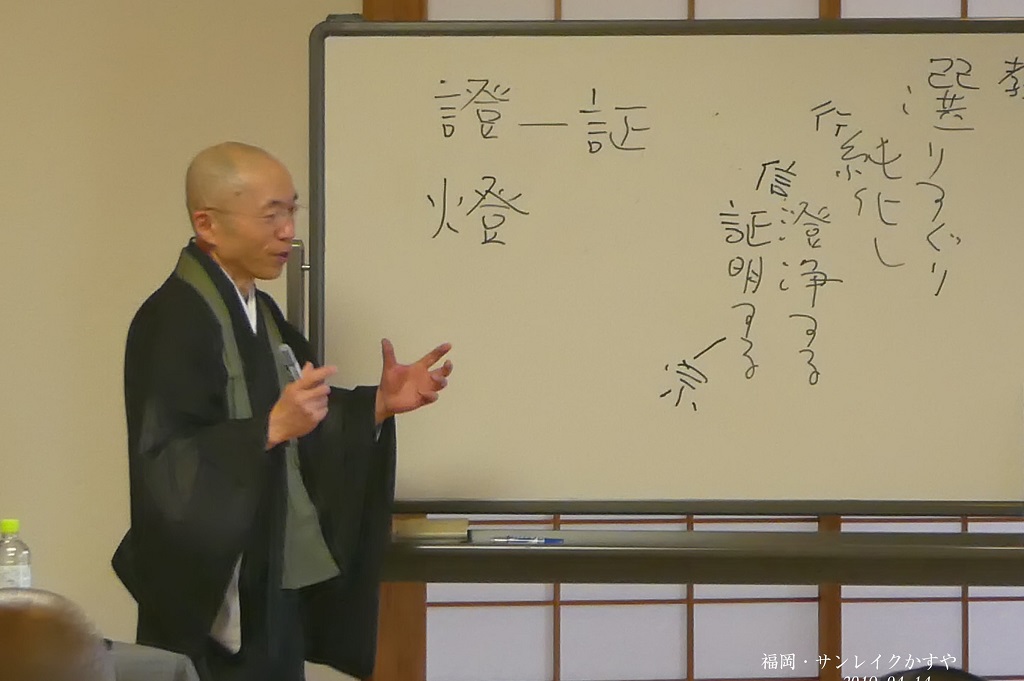 證―証
燈
教
選りすぐり
行
純化し
信
澄浄する
証明する
福岡・サンレイクかすや